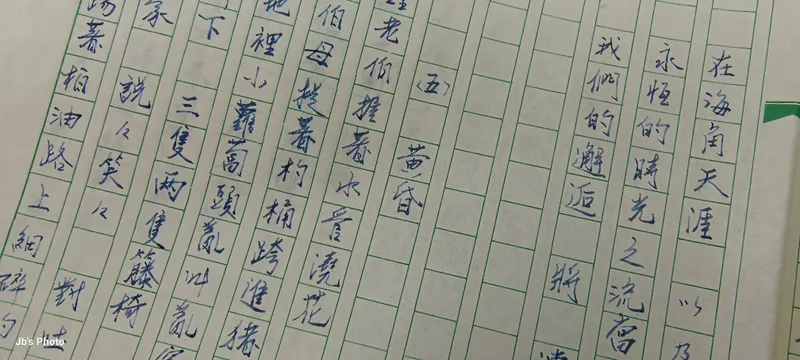 在海角天涯　以及
永恆的時光之流當
我們的邂逅　將
(五)　黃昏
老伯握著水管澆花
伯母提著杓桶跨進豬
地裡小蘿蔔頭亂叫亂
下　三隻兩隻籐椅
家　說々笑々　對
踢著柏油路上細碎的
Jb's Photo